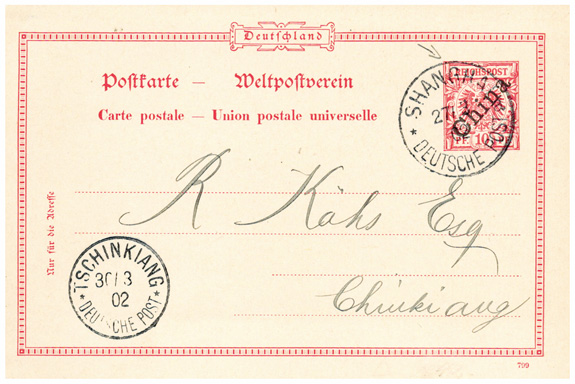 Deutschland
Postkarte — Weltpostverein
Carte postale — Union postale universelle
REICHSPOST
10
China
DEUTSCHE POST
R Kähs Esq
Chinkiang
Nur für die Adresse
TSCHINKIANG
30/3
02
DEUTSCHE POST
799